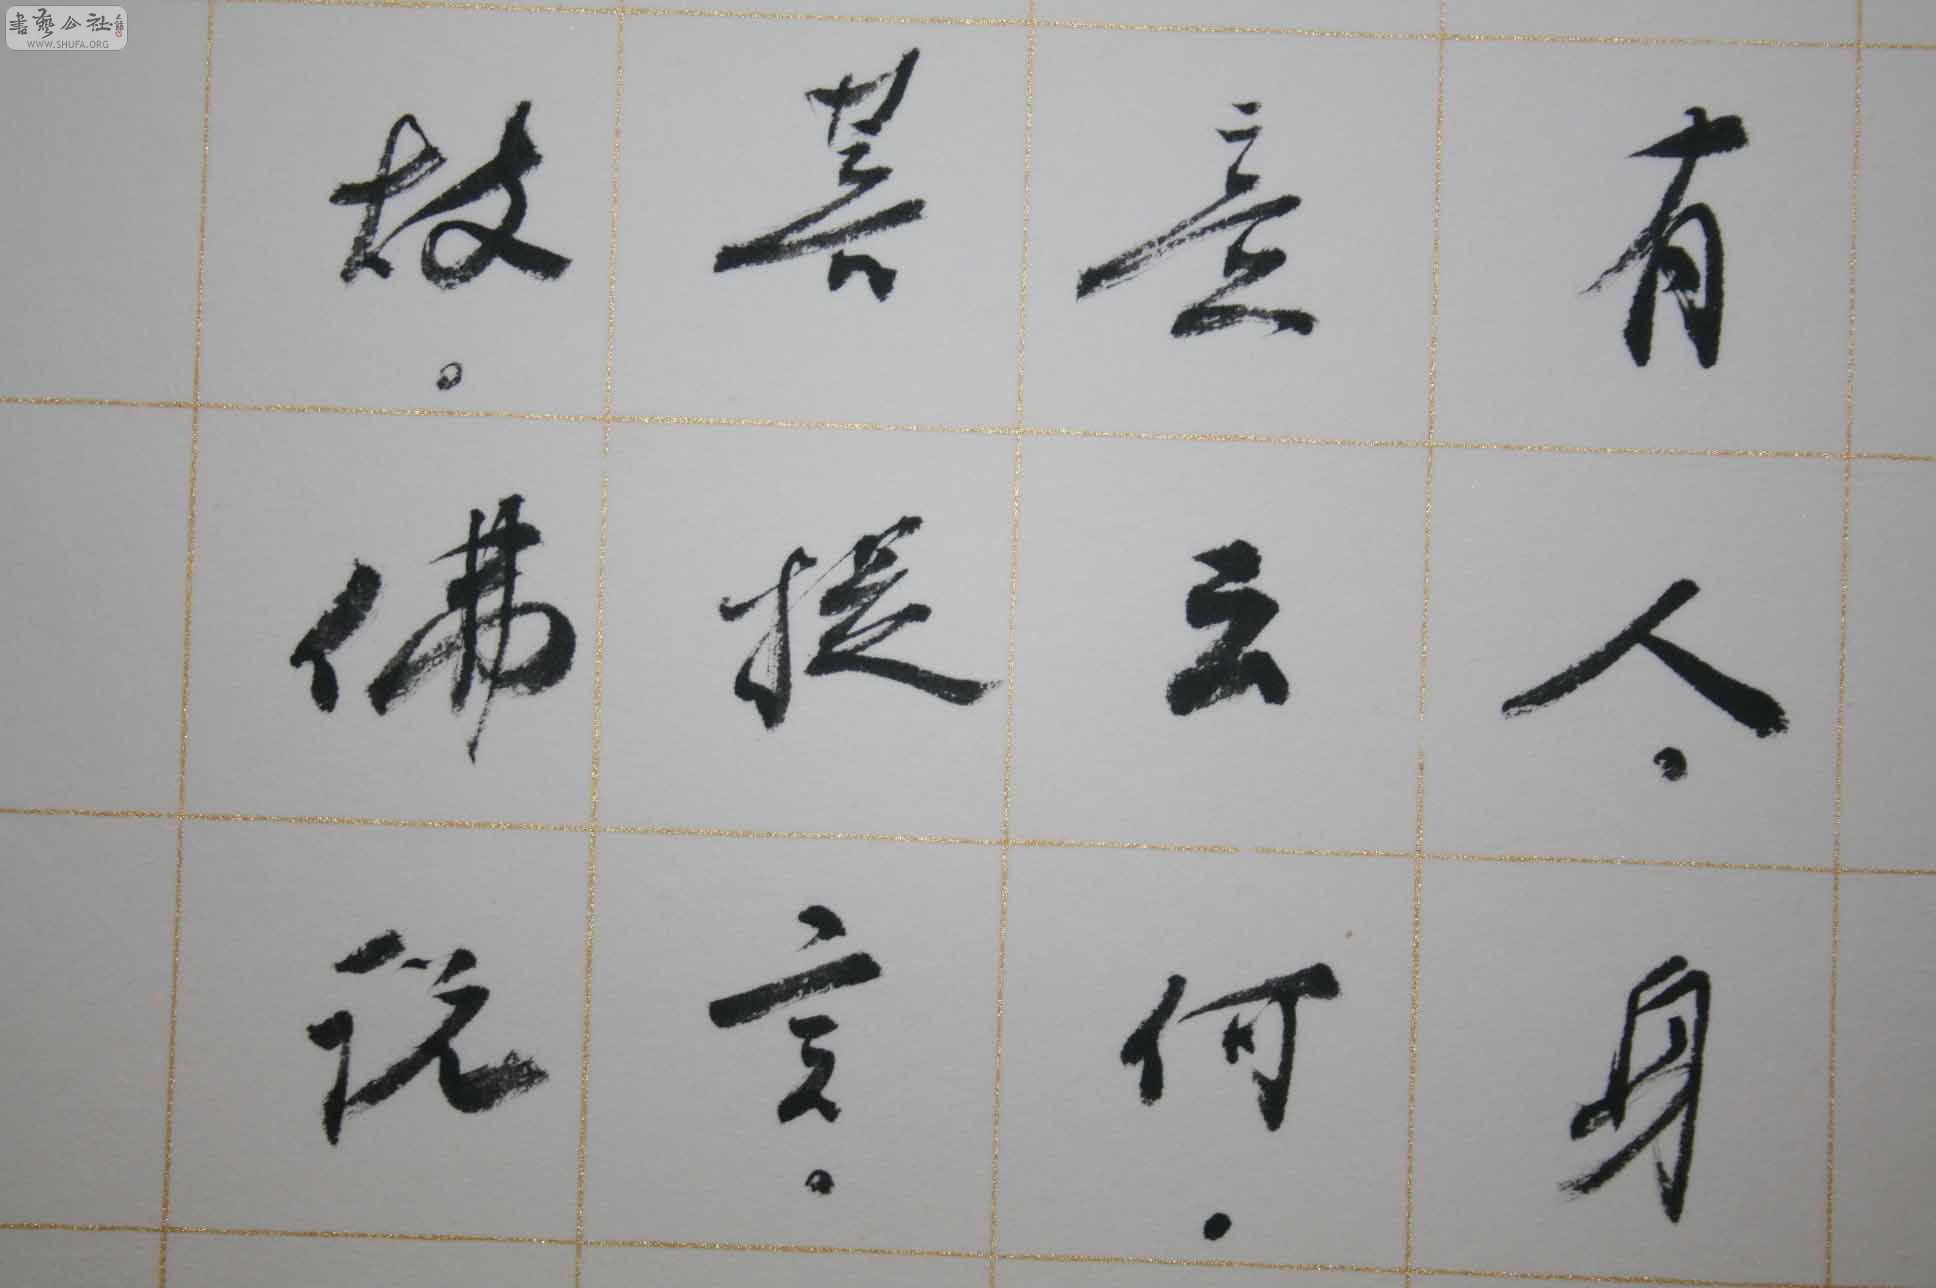 書藝公社
WWW.SHUFA.ORG
有人。身
意云何。
菩提言。
故。佛説